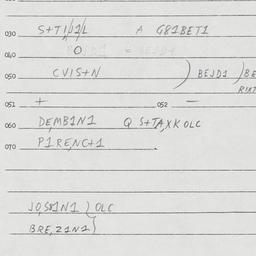 030 S+TI/J1/L A G81BET1
040 O
050 CVIS+N ) BEJD1 ) BE
RIXT
051 + 052 —
060 DEMB1N1 Q S+TAXKOLC
070 P1RENC+1
OLC
BRE,21N1